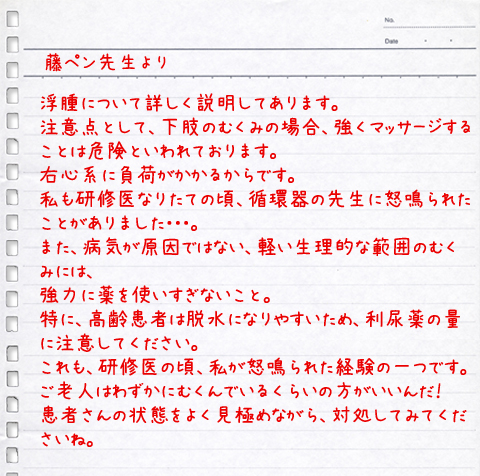 No.
Date
藤ペン先生より
浮腫について詳しく説明してあります。
注意点として、下肢のむくみの場合、強くマッサージする
ことは危険といわれております。
右心系に負荷がかかるからです。
私も研修医なりたての頃、循環器の先生に怒鳴られた
ことがありました・・・。
また、病気が原因ではない、軽い生理的な範囲のむく
みには、
強力に薬を使いすぎないこと。
特に、高齢患者は脱水になりやすいため、利尿薬の量
に注意してください。
これも、研修医の頃、私が怒鳴られた経験の一つです。
ご老人はわずかにむくんでいるくらいの方がいいんだ!
患者さんの状態をよく見極めながら、対処してみてくだ
さいね。